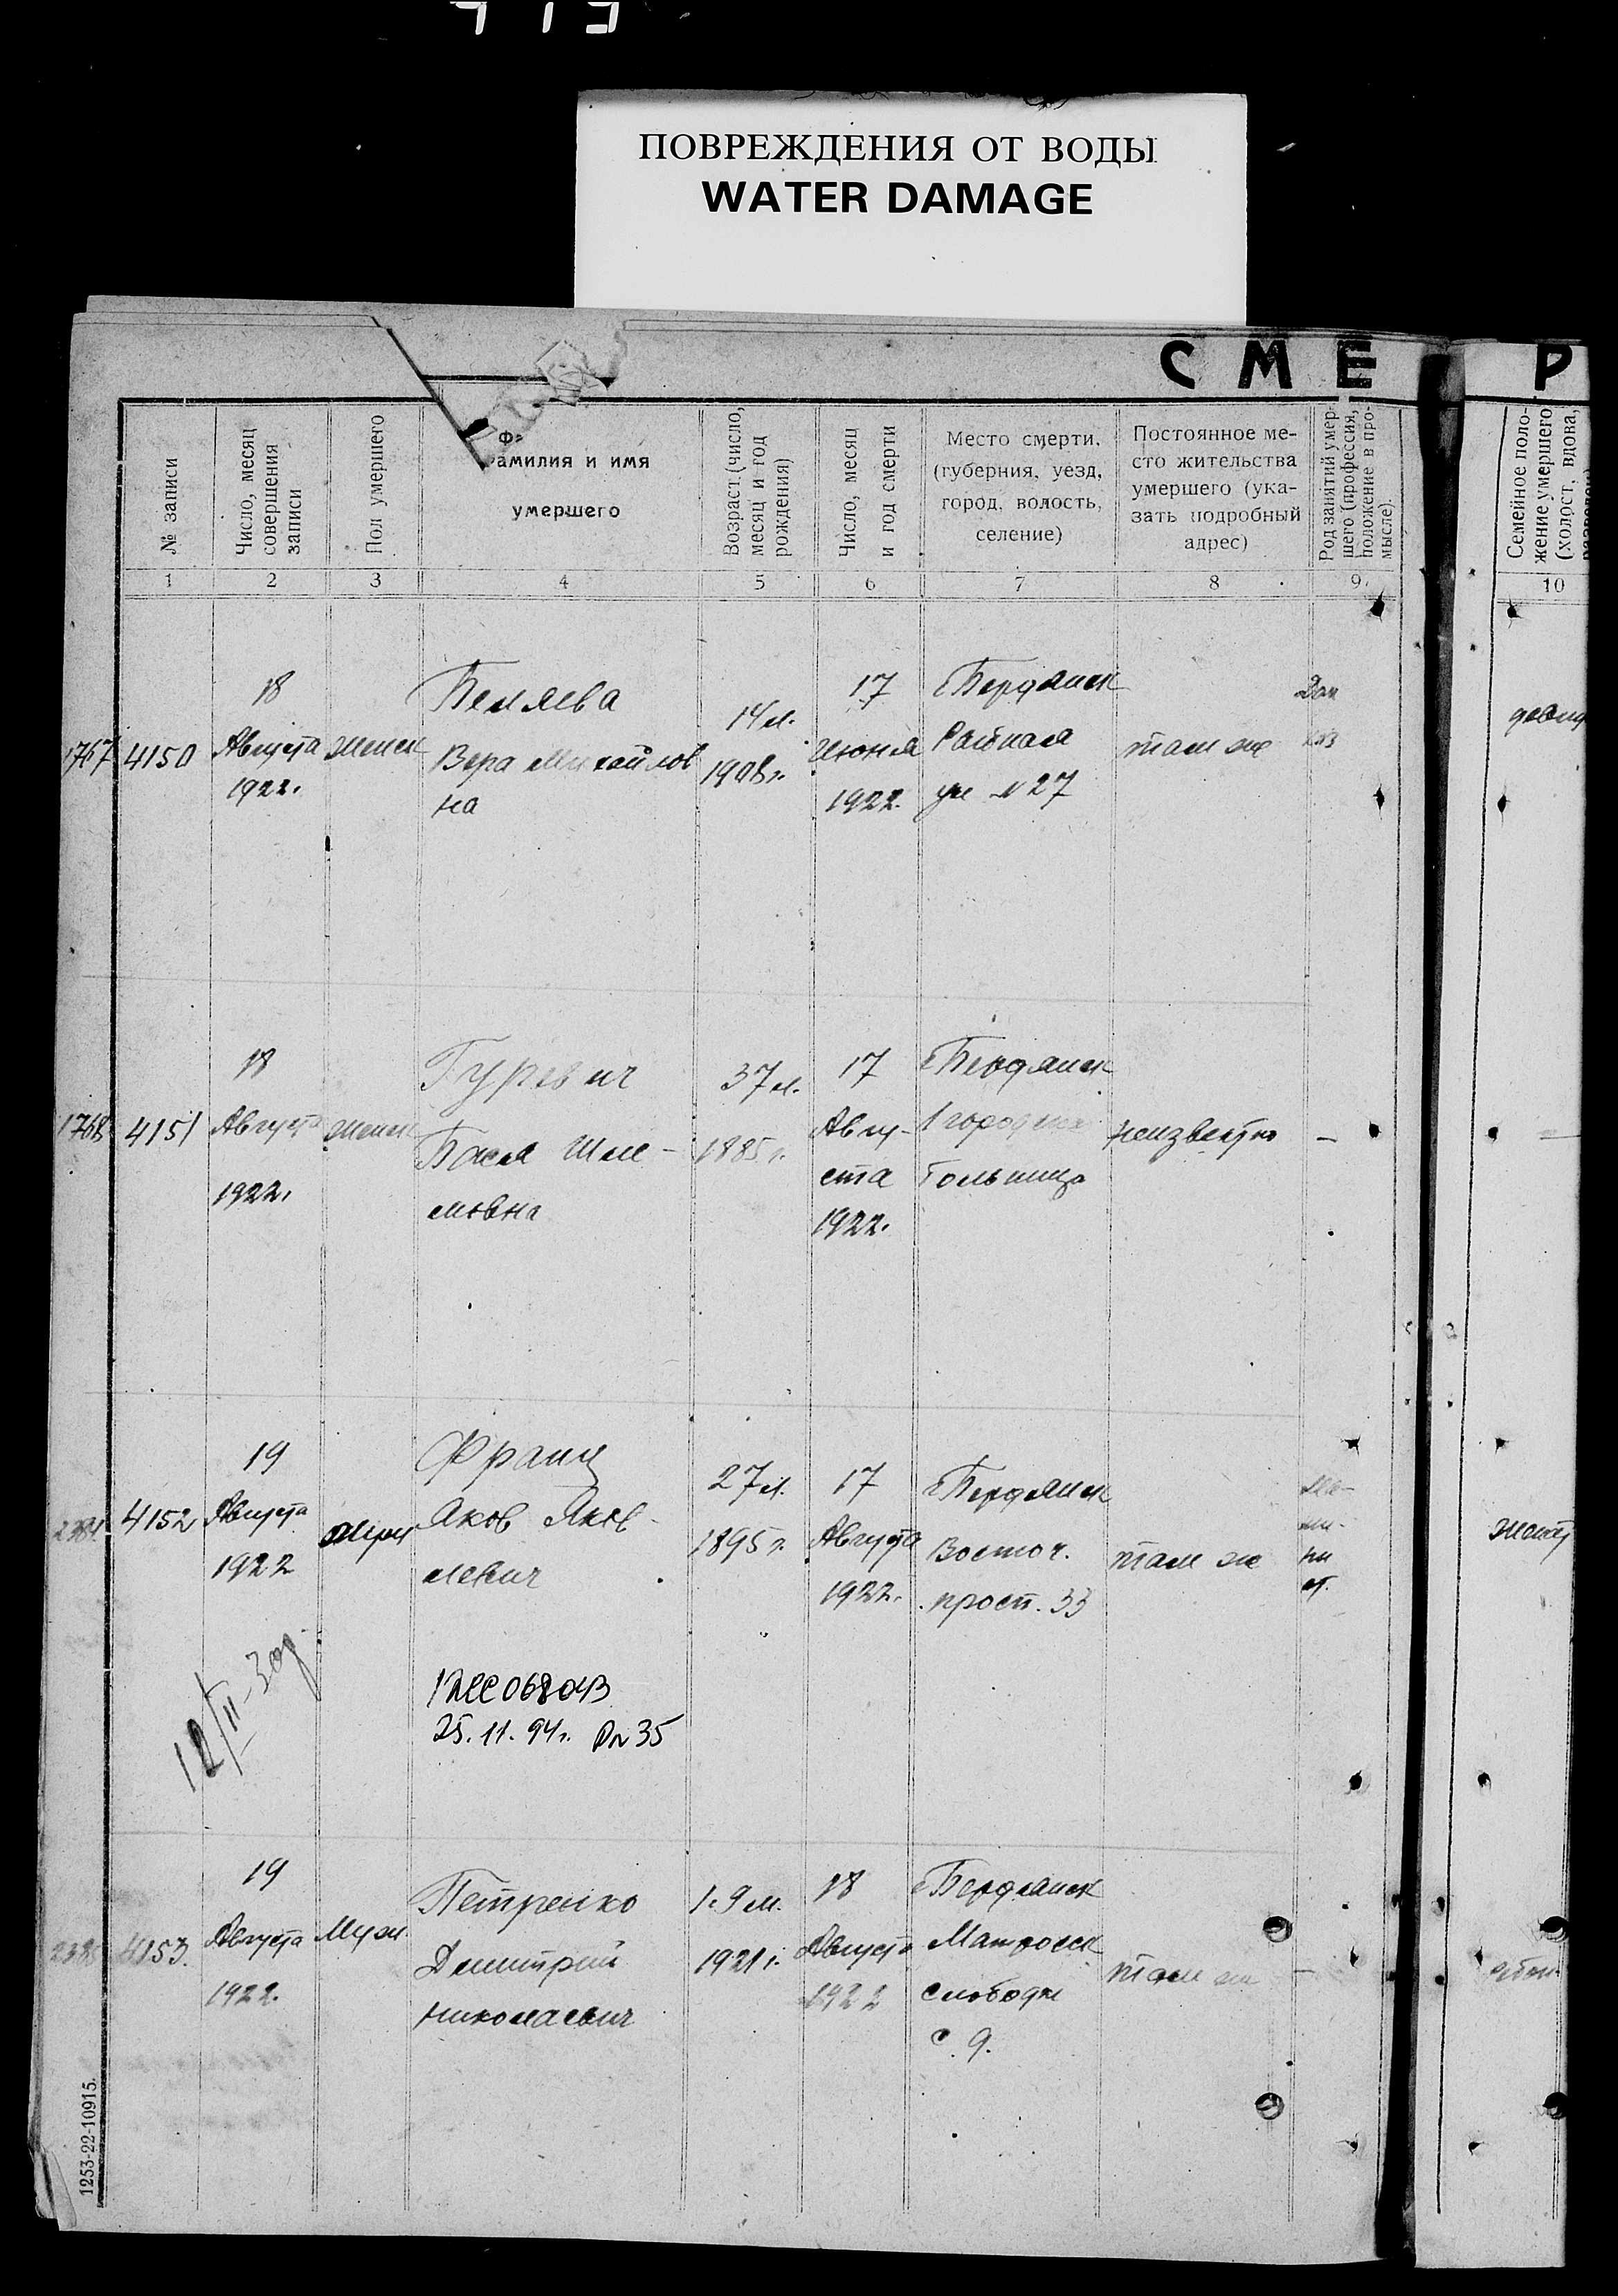 ПОВРЕЖДЕНИЯ ОТ ВОДЫ
WATER DAMAGE
СМЕ Р
№ записи
Число, месяц
совершения
записи
Пол умершего
Фамилия и имя
умершего
Возраст (число,
месяц и год
рождения)
Число, месяц
и год смерти
Место смерти,
(губерния, уезд,
город, волость,
селение)
Постоянное ме-
сто жительства
умершего (ука-
зать подробный
адрес)
Род занятий умер-
шего (профессия,
положение в про-
мысле).
Семейное поло-
жение умершего
(холост, вдова,
1 2 3 4 5 6 7 8 9 10
1767
4150
18
Августа
1922.
женск
Беляева
Вера Михайлов
на
14 л.
1908 г.
17
Июня
1922.
Бердянск
ул №27
там же
1768
4151
18
Августа
1922.
женск
Гуревич
Бася Шле-
мовна
37 л.
1885 г.
17
Авгу-
ста
1922.
Бердянск
1 городская
больница
неизвестно
—
—
4152
19
Августа
1922
муж
Франц
Яков Яков-
левич
27 л.
1895 г.
17
Августа
1922.
Бердянск
Восточ.
просп. 33
там же
женат
25.11.94г.
4153.
19
Августа
1922.
Муж.
Петренко
Димитрий
Николаевич
1 г. 9 м.
1921 г.
18
Августа
1922
Бердянск
Матросск
слободк
с. 9.
там же
—
1253-22-10915.